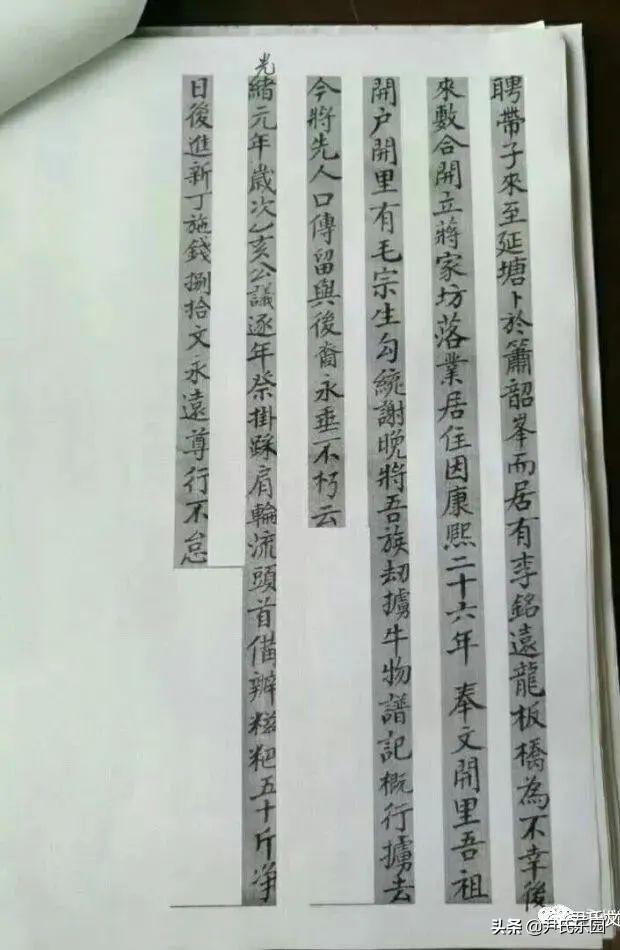 聘帶子來至延塘卜於簫韶峯而居有李銘遠龍板橋為不幸後
來數合開立蔣家坊落業居住因康熙二十六年 奉文開里吾祖
開户開里有毛宗生勾統謝晚將吾族劫擄牛物譜記概行擄去
今將先人口傳留與後裔永垂不朽云
光緒元年歲次乙亥公議逐年祭掛踩肩輪流頭首俻辦糍粑五十斤淨
日後進新丁施錢捌拾文永遠尊行不怠
头条 @尹氏乐园